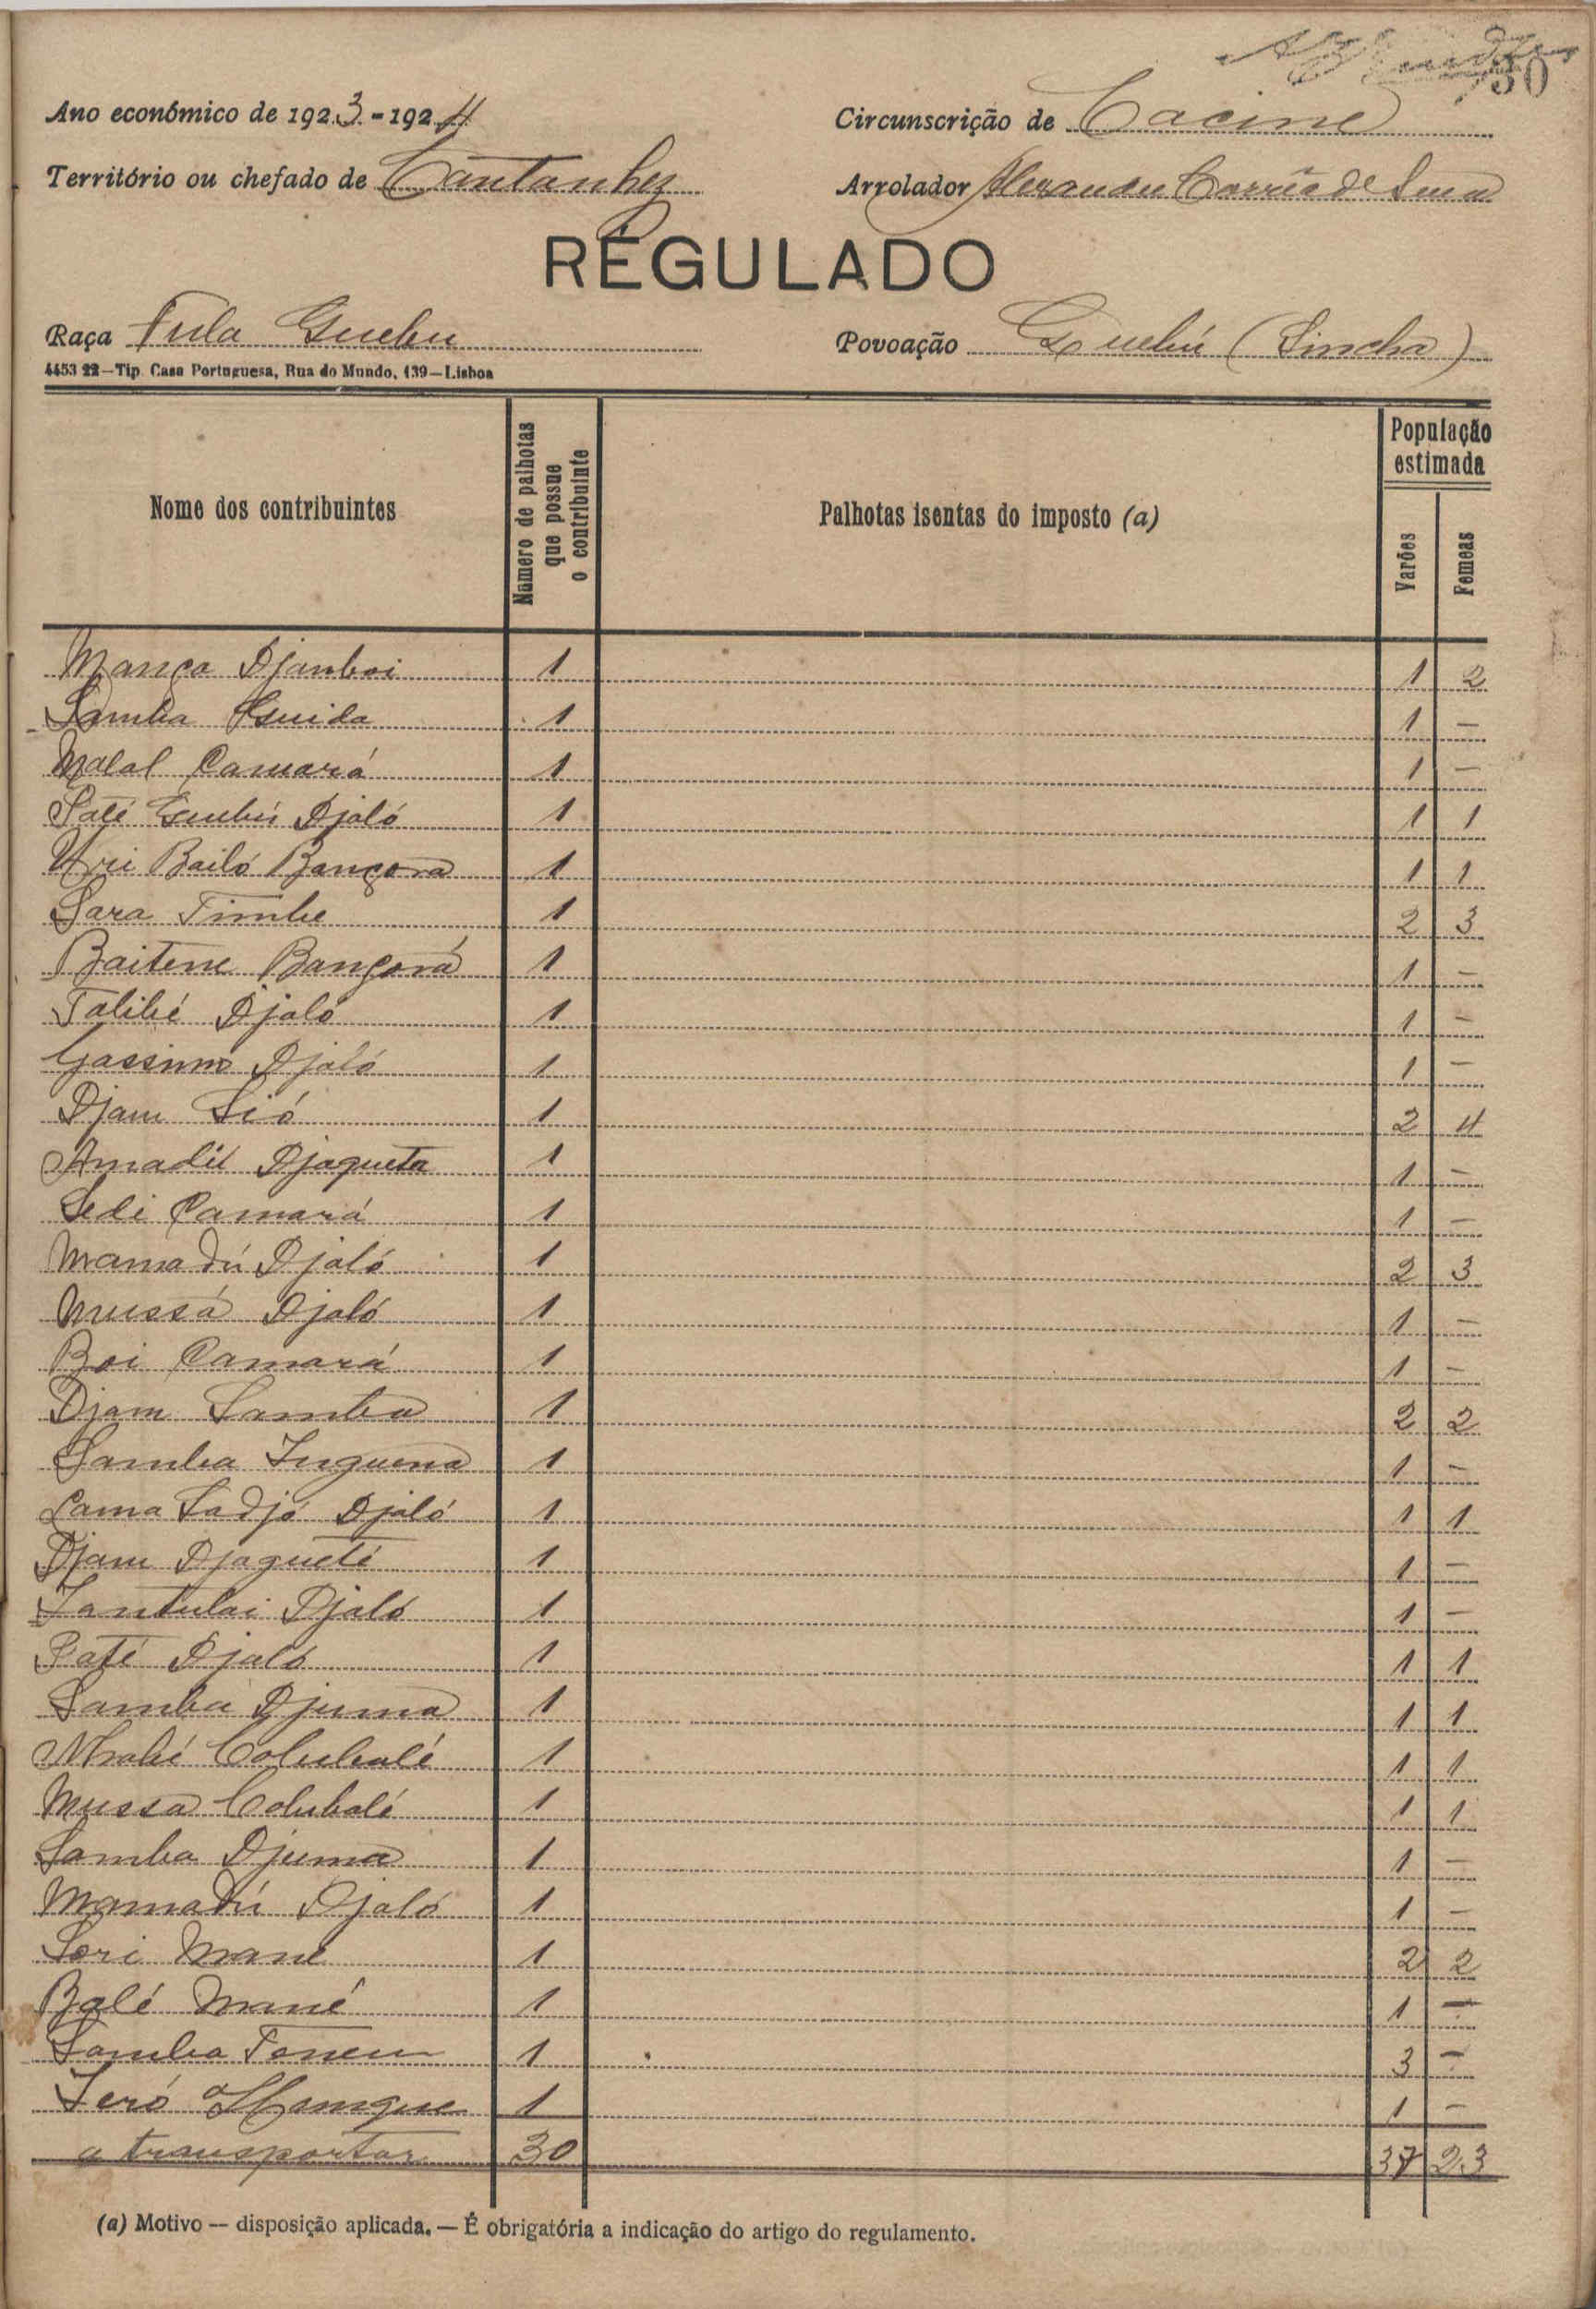 30
Ano económico de 1923-1924 Circunscrição de Cacine
Território ou chefado de Cantanhez Arrolador Alexandre Corrêa de Sena
REGULADO
Raça Fula Guebu Povoação Guebú (Sincha)
4453 22—Tip. Casa Portuguesa, Rua do Mundo, 139—Lisboa
Nome dos contribuintes Número de palhotas que possue o contribuinte Palhotas isentas do imposto (a) População estimada Varões Femeas
Mança Djamboi 1 1 2
Samba Guida 1 1 —
Malal Camará 1 1 —
Paté Guebú Djaló 1 1 1
Uri Bailó Bançora 1 1 1
Sara Timbe 1 2 3
Baitene Bançorá 1 1 —
Talibé Djaló 1 1 —
Gassimo Djaló 1 1 —
Djam Sió 1 2 4
Amadú Djaqueta 1 1 —
Sedi Camará 1 1 —
Mamadú Djaló 1 2 3
Mussá Djaló 1 1 —
Boi Camará 1 1 —
Djam Samba 1 2 2
Samba Inguena 1 1 —
Lama Sadjó Djaló 1 1 1
Djam Djaqueté 1 1 —
Iantulai Djaló 1 1 —
Paté Djaló 1 1 1
Samba Djuma 1 1 1
Colubalé 1 1 1
Mussa Colubalé 1 1 1
Samba Djuma 1 1 —
Mamadú Djaló 1 1 —
Sori Mané 1 2 2
Balé Mané 1 1 —
Samba 1 3 —
Ieró 1 1 —
a transportar 30 37 23
(a) Motivo — disposição aplicada. — É obrigatória a indicação do artigo do regulamento.